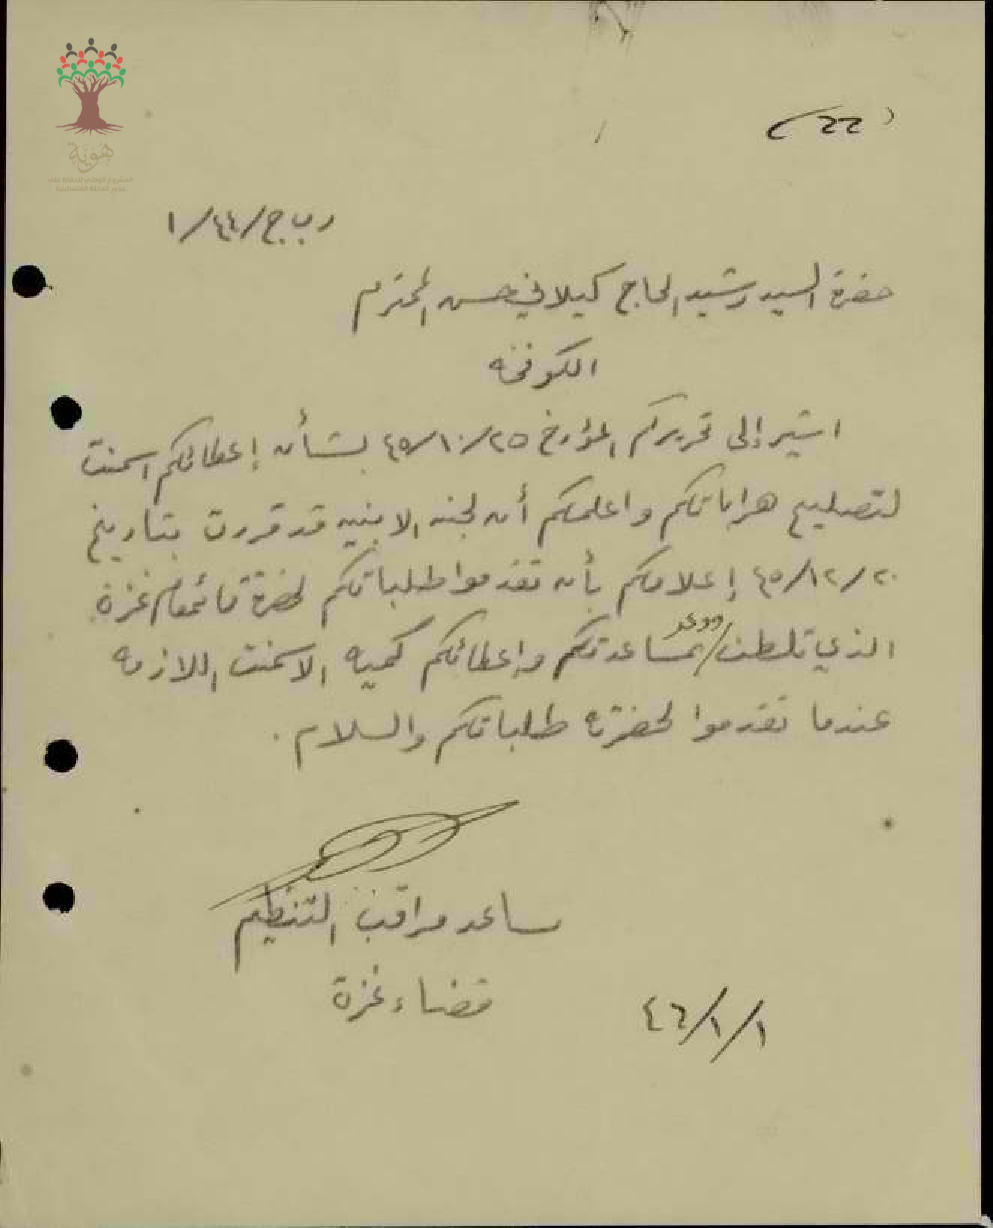 هوية
(٢٢)
ر ب ج/٤٤/١
حضرة السيد رشيد الحاج كيلاني حسن المحترم
الكوفخه
اشير إلى تحريركم المؤرخ ٤٥/١٠/٢٥ بشأن إعطائكم اسمنت
لتصليح هراباتكم واعلمكم أن لجنه الابنيه قد قررت بتاريخ
٤٥/١٢/٢٠ إعلامكم بأن تقدموا طلباتكم لحضرة قائمقام غزة
الذي تلطف ووعد بمساعدتكم وإعطائكم كميه الاسمنت اللازمه
عندما تقدموا لحضرته طلباتكم والسلام .
مساعد مراقب التنظيم
قضاء غزة
٤٦/١/١